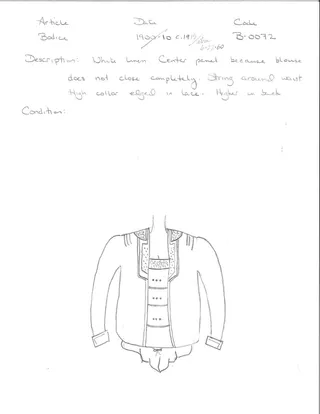 Article Date Code
Bodice 1900-10 c.1911 B-0072
Description: White linen Center panel because blouse
does not close completely. String around waist
High collar edged in lace. Higher in back
Condition: